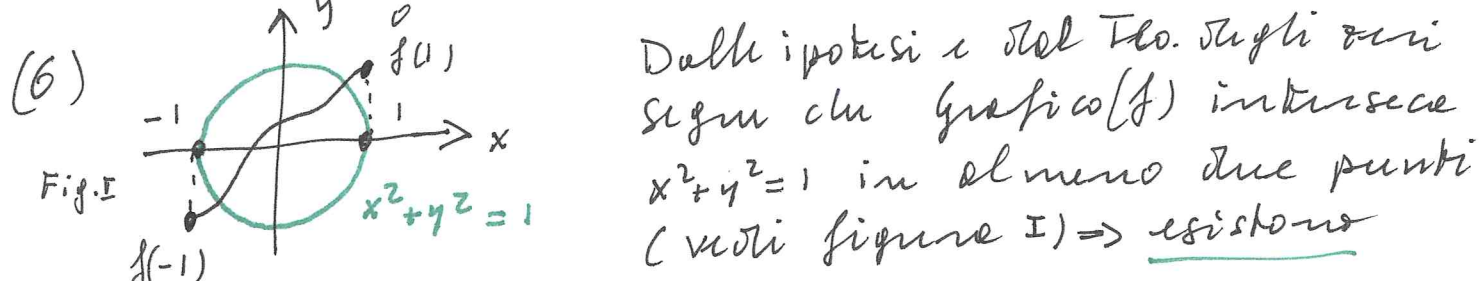 (6)
y
f(1)
-1
1
x
Fig.I
x²+y²=1
f(-1)
Dalle ipotesi e dal Teo. degli zeri
segue che Grafico(f) interseca
x²+y²=1 in almeno due punti
(vedi figura I) ⇒ esistono